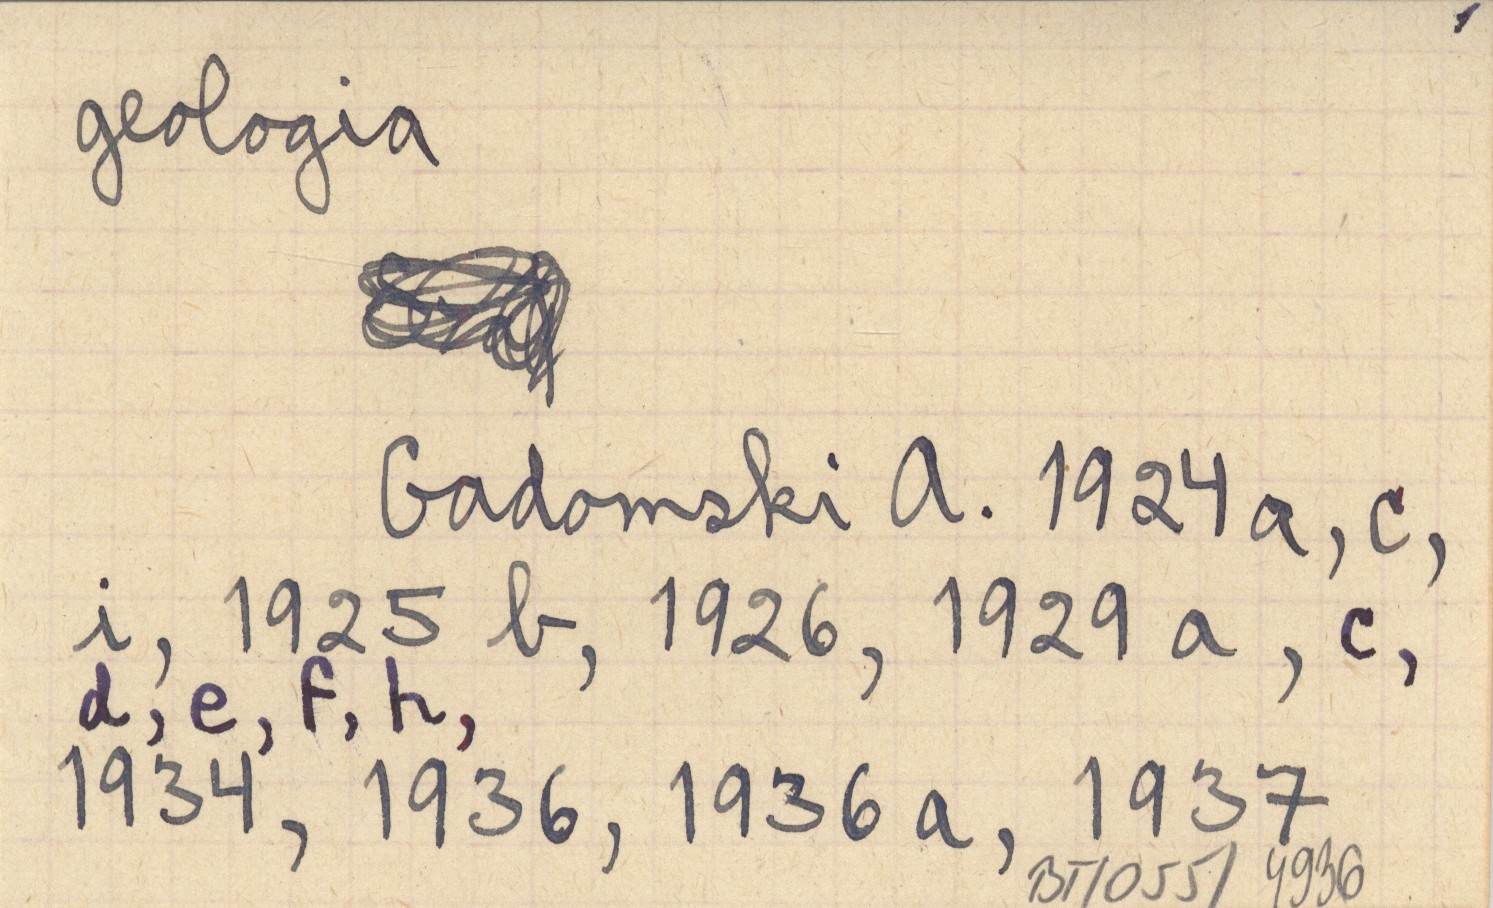 geologia
Gadomski A. 1924 a, c,
i, 1925 b, 1926, 1929 a, c,
d, e, f, h,
1934, 1936, 1936 a, 1937
BT/055/ 4936